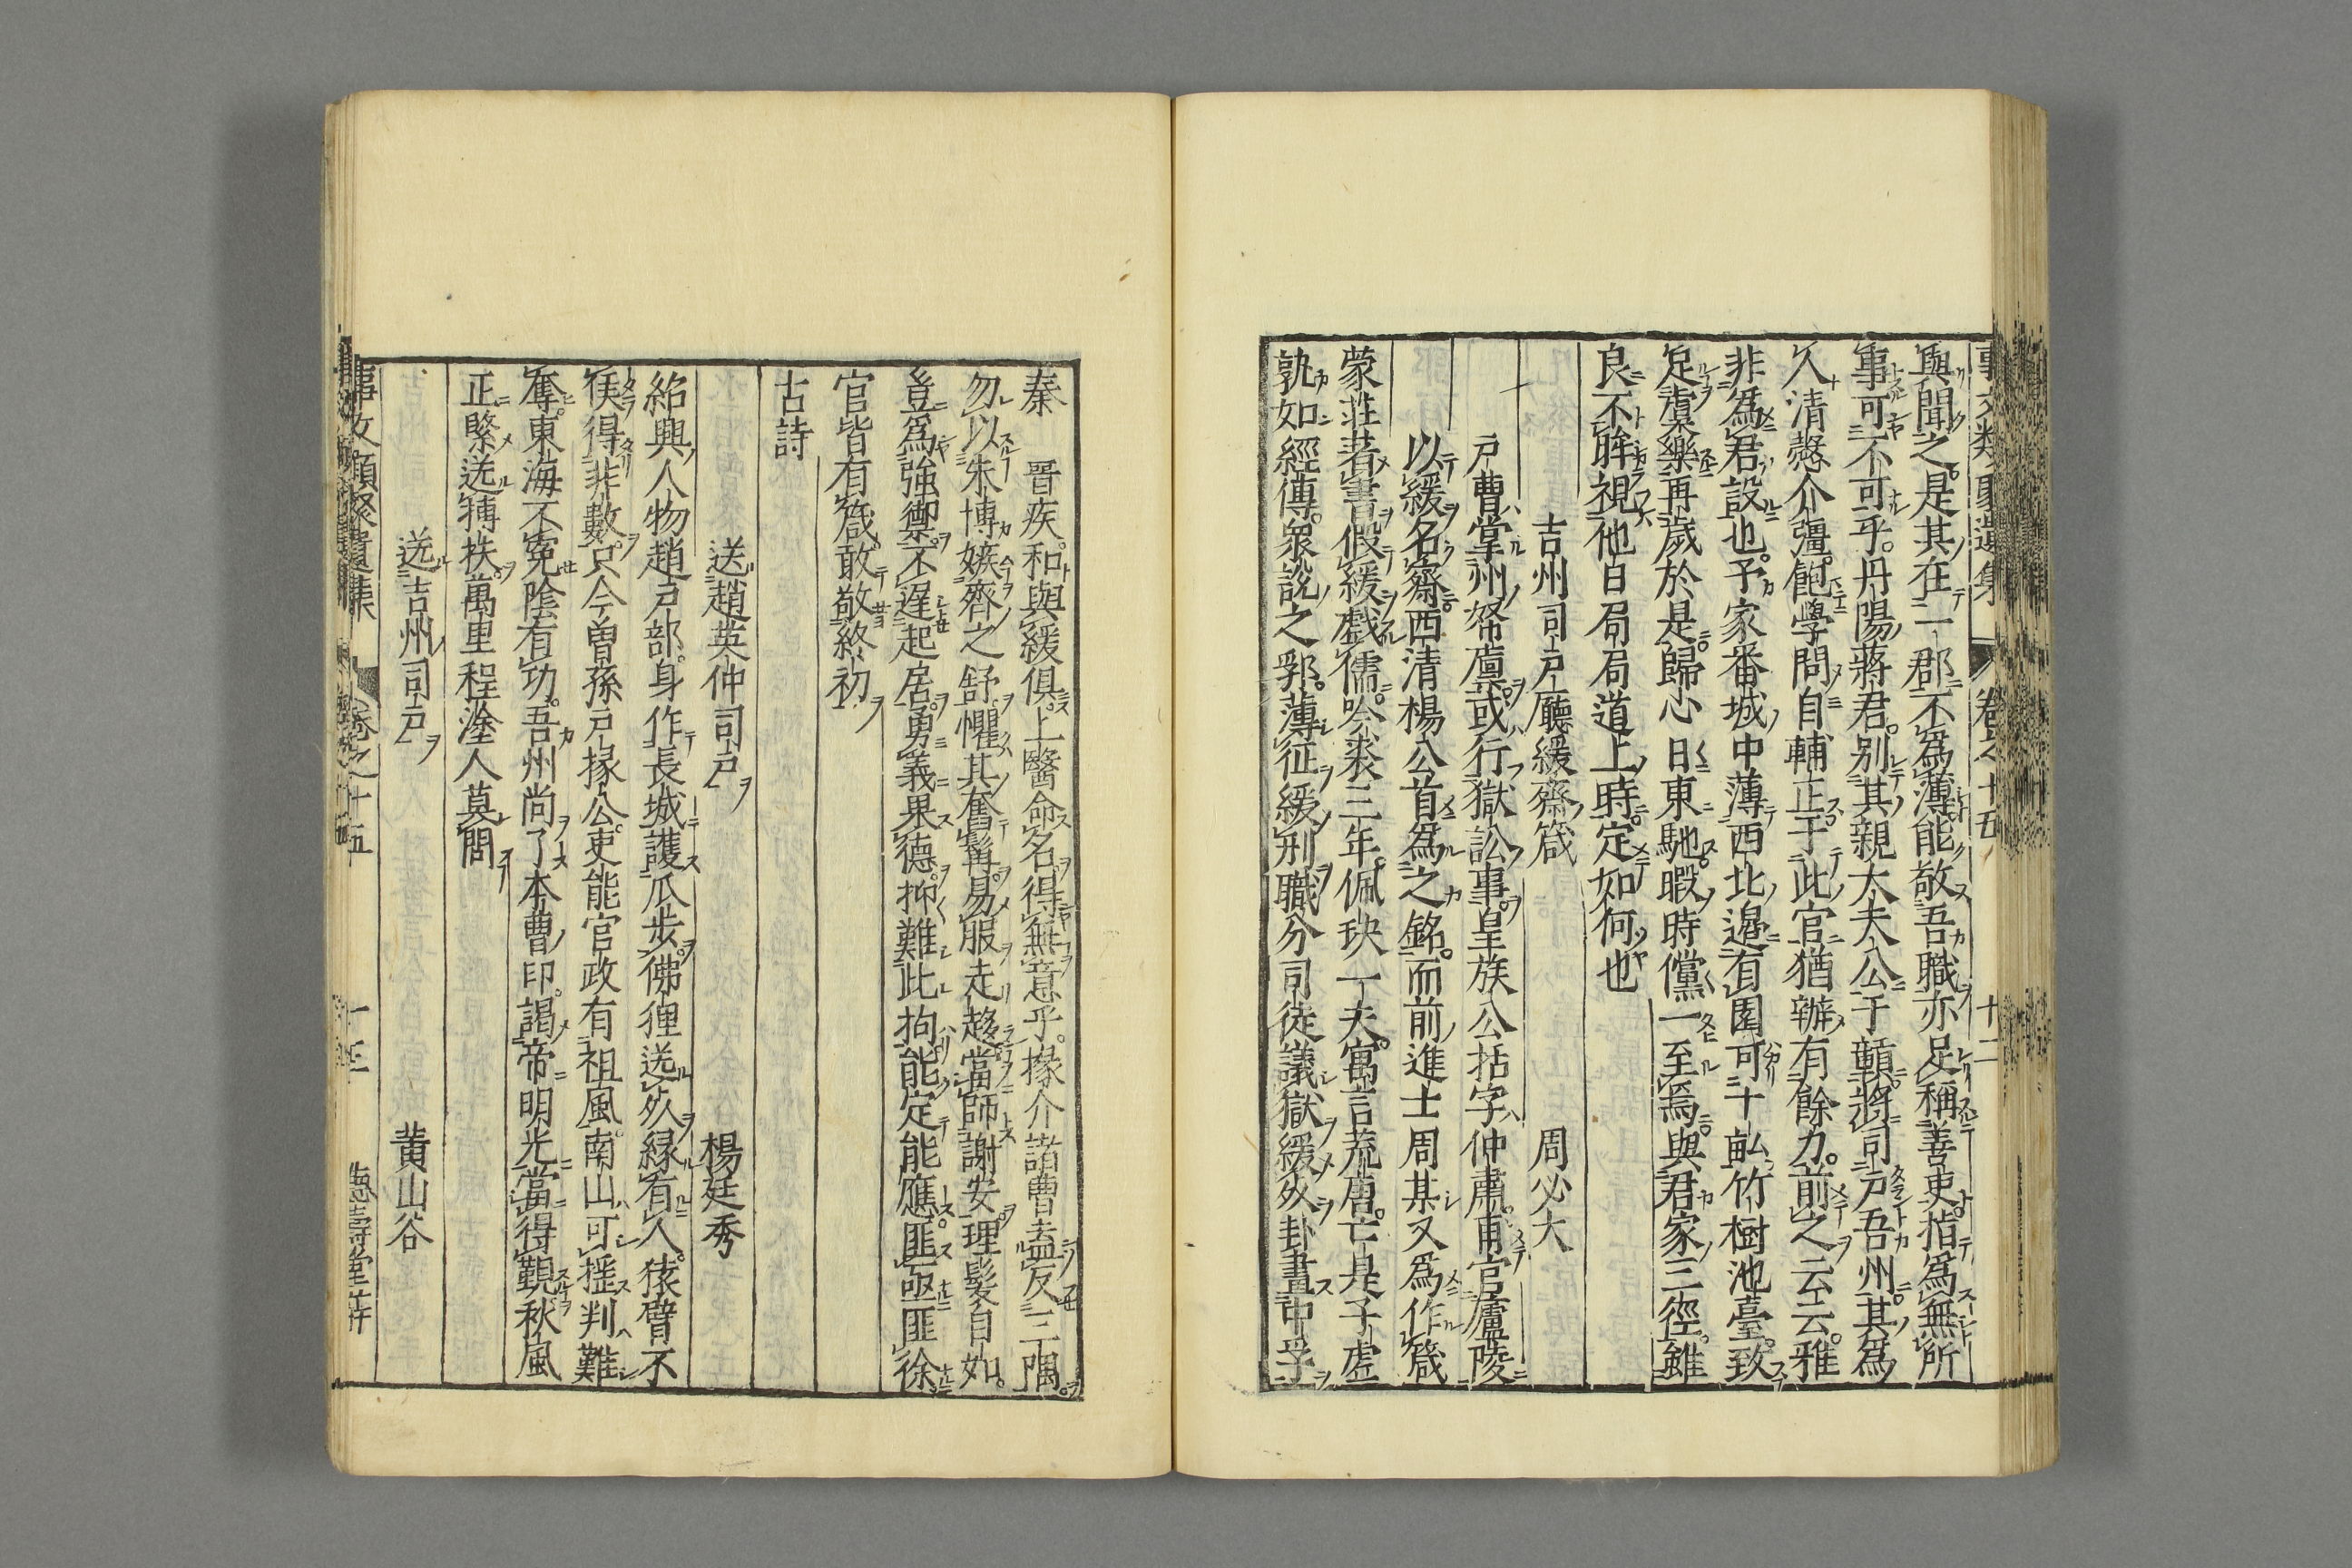 事文類聚遺集 卷之十五 十二
與聞之是其在一郡不為薄能敬吾職亦足稱善吏指為無所
事可不可乎丹陽蔣君別其親大夫公于贛將司戶吾州其為
人清慤介彊飽學問自輔正于此官猶辦有餘力前之云云雅
非為君設也予家番城中薄西北邉有園可十畝竹樹池臺致
足虞樂再歲於是歸心日東馳暇時儻一至焉與君家三徑雖
良不眸視他日局局道上時定如何也
吉州司戶廳緩齋箴 周必大
戶曹掌州帑廪或行獄訟事皇族公括字仲肅甫官廬陵
以緩名齋西清楊公首為之銘而前進士周某又為作箴
蒙莊著書假緩戲儒吟裘三年佩玦一夫寓言荒唐亡是子虛
孰如經傳衆說之郛薄征緩刑職分司徒議獄緩死卦畫中孚
秦晉疾和與緩俱上醫命名得無意乎掾介諸曹盍反三隅
勿以朱博嫉齊之舒懼其奮髯易服走趍當師謝安理髮自如
豈為強禦不遲起居勇義果德抑難此拘能定能應匪亟匪徐
官皆有箴敢敬終初
古詩
送趙英仲司戶 楊廷秀
紹興人物趙戶部身作長城護瓜步佛狸送死緣有人猿臂不
侯得非數只今曾孫戶掾公吏能官政有祖風南山可揺判難
奪東海不寃隂有功吾州尚了本曹印謁帝明光當得覲秋風
正緊送摶扶萬里程塗人莫問
送吉州司戶 黃山谷
事文類聚遺集 卷之十五 十三 德壽堂梓